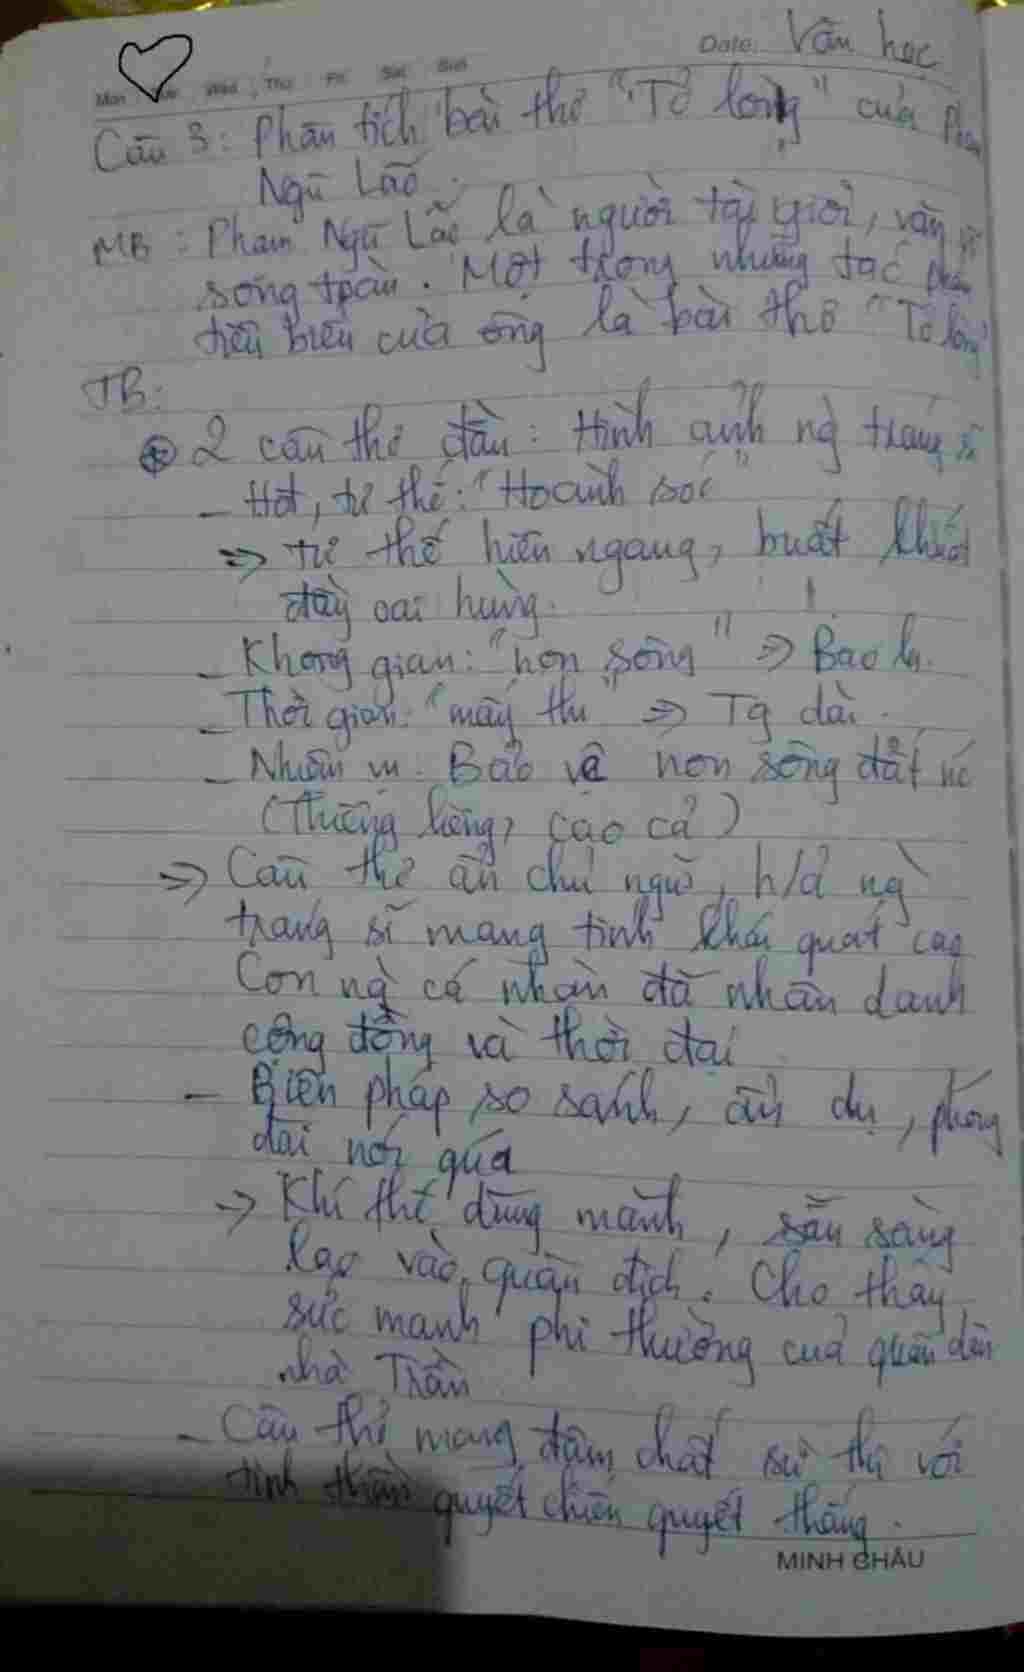 Date: Văn học
Mon Wed Thu Fri Sat Sun
Câu 3: Phân tích bài thơ "Tỏ lòng" của Phạm
Ngũ Lão.
MB: Phạm Ngũ Lão là người tài giỏi, văn võ
song toàn. Một trong những tác phẩm
tiêu biểu của ông là bài thơ "Tỏ lòng"
TB:
2 câu thơ đầu: Hình ảnh ng` tráng sĩ
- Hđ, tư thế: "Hoành sóc"
=> tư thế hiên ngang, bất khuất
đầy oai hùng.
- Không gian: "non sông" => Bao la.
- Thời gian: "mấy thu" => Tg dài.
- Nhiệm vụ: Bảo vệ non sông đất nc
(Thiêng liêng, cao cả)
=> Câu thơ ẩn chủ ngữ, h/ả ng`
tráng sĩ mang tính khái quát cao
Con ng` cá nhân đã nhân danh
cộng đồng và thời đại
- Biện pháp so sánh, ẩn dụ, phóng
đại nói quá
-> Khí thế dũng mãnh, sẵn sàng
lao vào quân địch. Cho thấy
sức mạnh phi thường của quân dân
nhà Trần
- Câu thơ mang đậm chất sử thi với
tinh thần quyết chiến quyết thắng.
MINH CHÂU